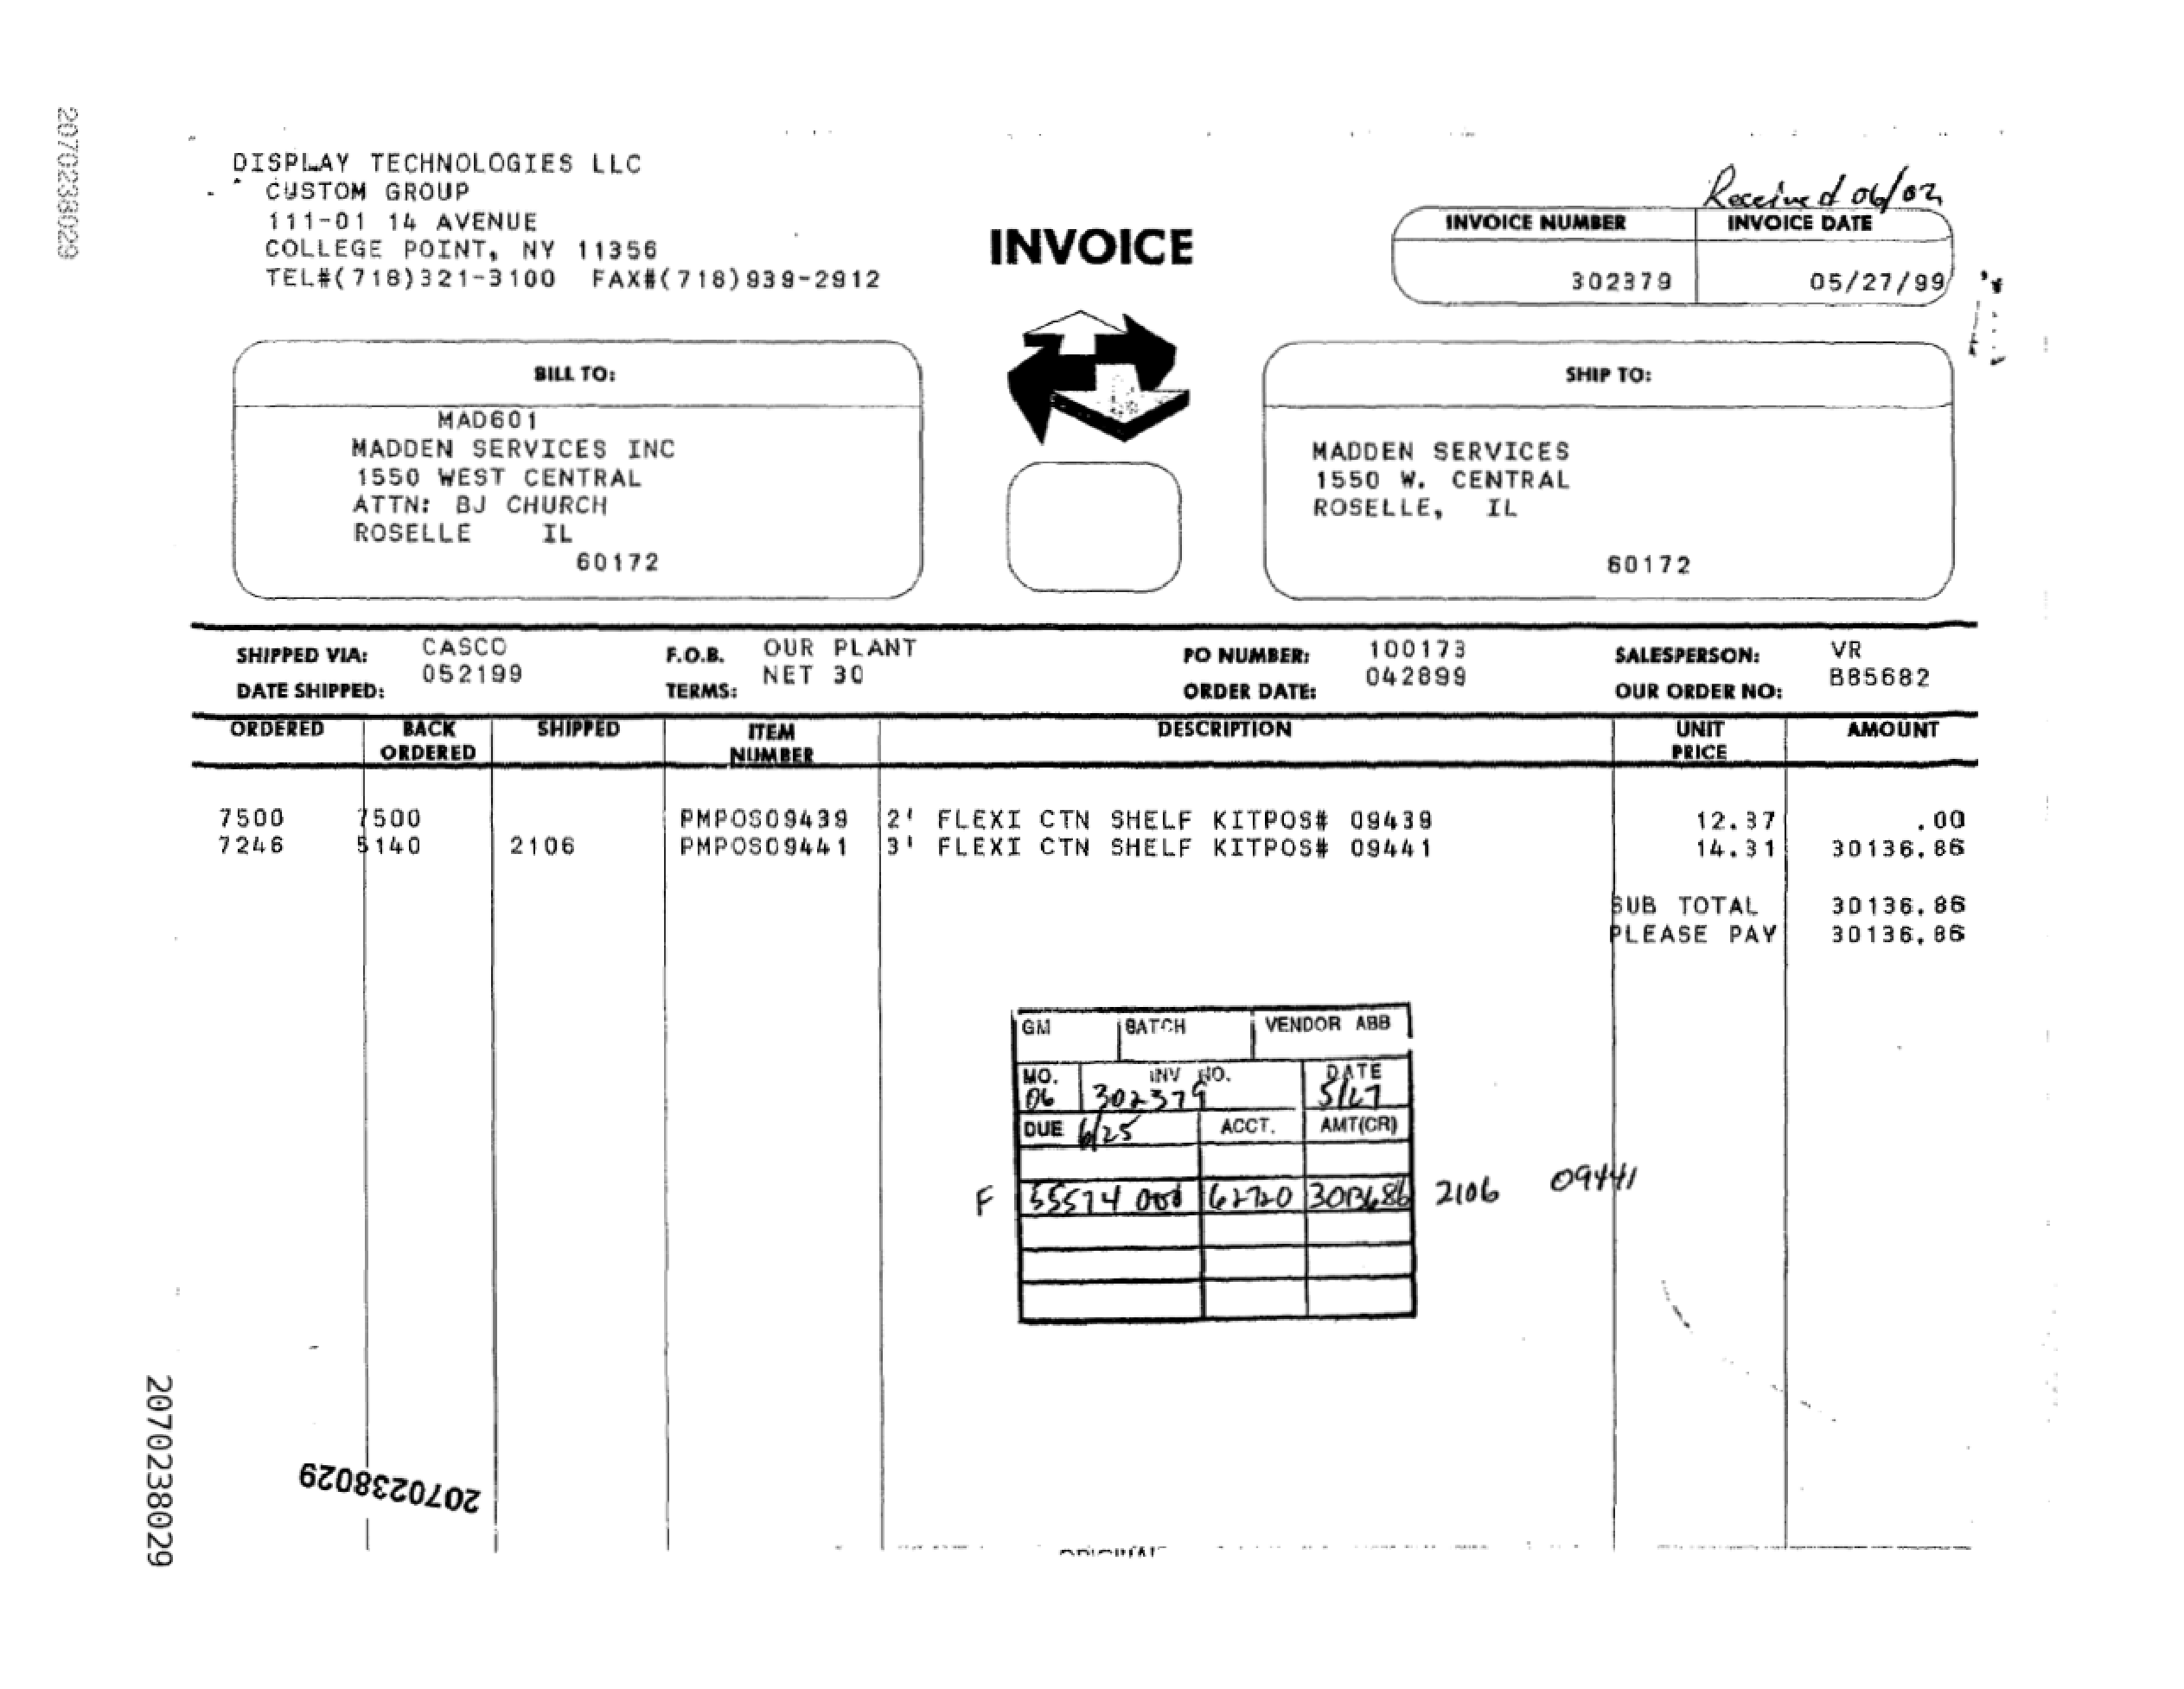 2070238029
DISPLAY TECHNOLOGIES LLC
CUSTOM GROUP
111-01 14 AVENUE
COLLEGE POINT, NY 11356
TEL#(718)321-3100 FAX#(718)939-2912
INVOICE
Received 06/02
INVOICE NUMBER INVOICE DATE
302379 05/27/99
BILL TO:
MAD601
MADDEN SERVICES INC
1550 WEST CENTRAL
ATTN: BJ CHURCH
ROSELLE IL
60172
SHIP TO:
MADDEN SERVICES
1550 W. CENTRAL
ROSELLE, IL
60172
SHIPPED VIA: CASCO F.O.B. OUR PLANT PO NUMBER: 100173 SALESPERSON: VR
DATE SHIPPED: 052199 TERMS: NET 30 ORDER DATE: 042899 OUR ORDER NO: B85682
ORDERED BACK ORDERED SHIPPED ITEM NUMBER DESCRIPTION UNIT PRICE AMOUNT
7500 7500 PMPOS09439 2' FLEXI CTN SHELF KITPOS# 09439 12.37 .00
7246 5140 2106 PMPOS09441 3' FLEXI CTN SHELF KITPOS# 09441 14.31 30136.86
SUB TOTAL 30136.86
PLEASE PAY 30136.86
GM BATCH VENDOR ABB
MO. INV NO. DATE
06 302379 5/27
DUE 6/25 ACCT. AMT(CR)
F 55574 000 62720 3013686 2106 09441
2070238029
2070238029